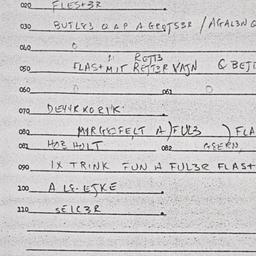 020 FLES+3R
030 BUTLE3 QAP AGROTS3R / AGAL3N
040
050 FLAS+MIT RETT3R VAJN Q BEJ
060 061
070 DEVVRKORIK
080 MYRGEFELT A) FUL3 ) FLA
081 HOE HOLT 082
090 IX TRINK FUN A FUL3R FLAS+
100 A LE.EJKE
110 SEIC3R